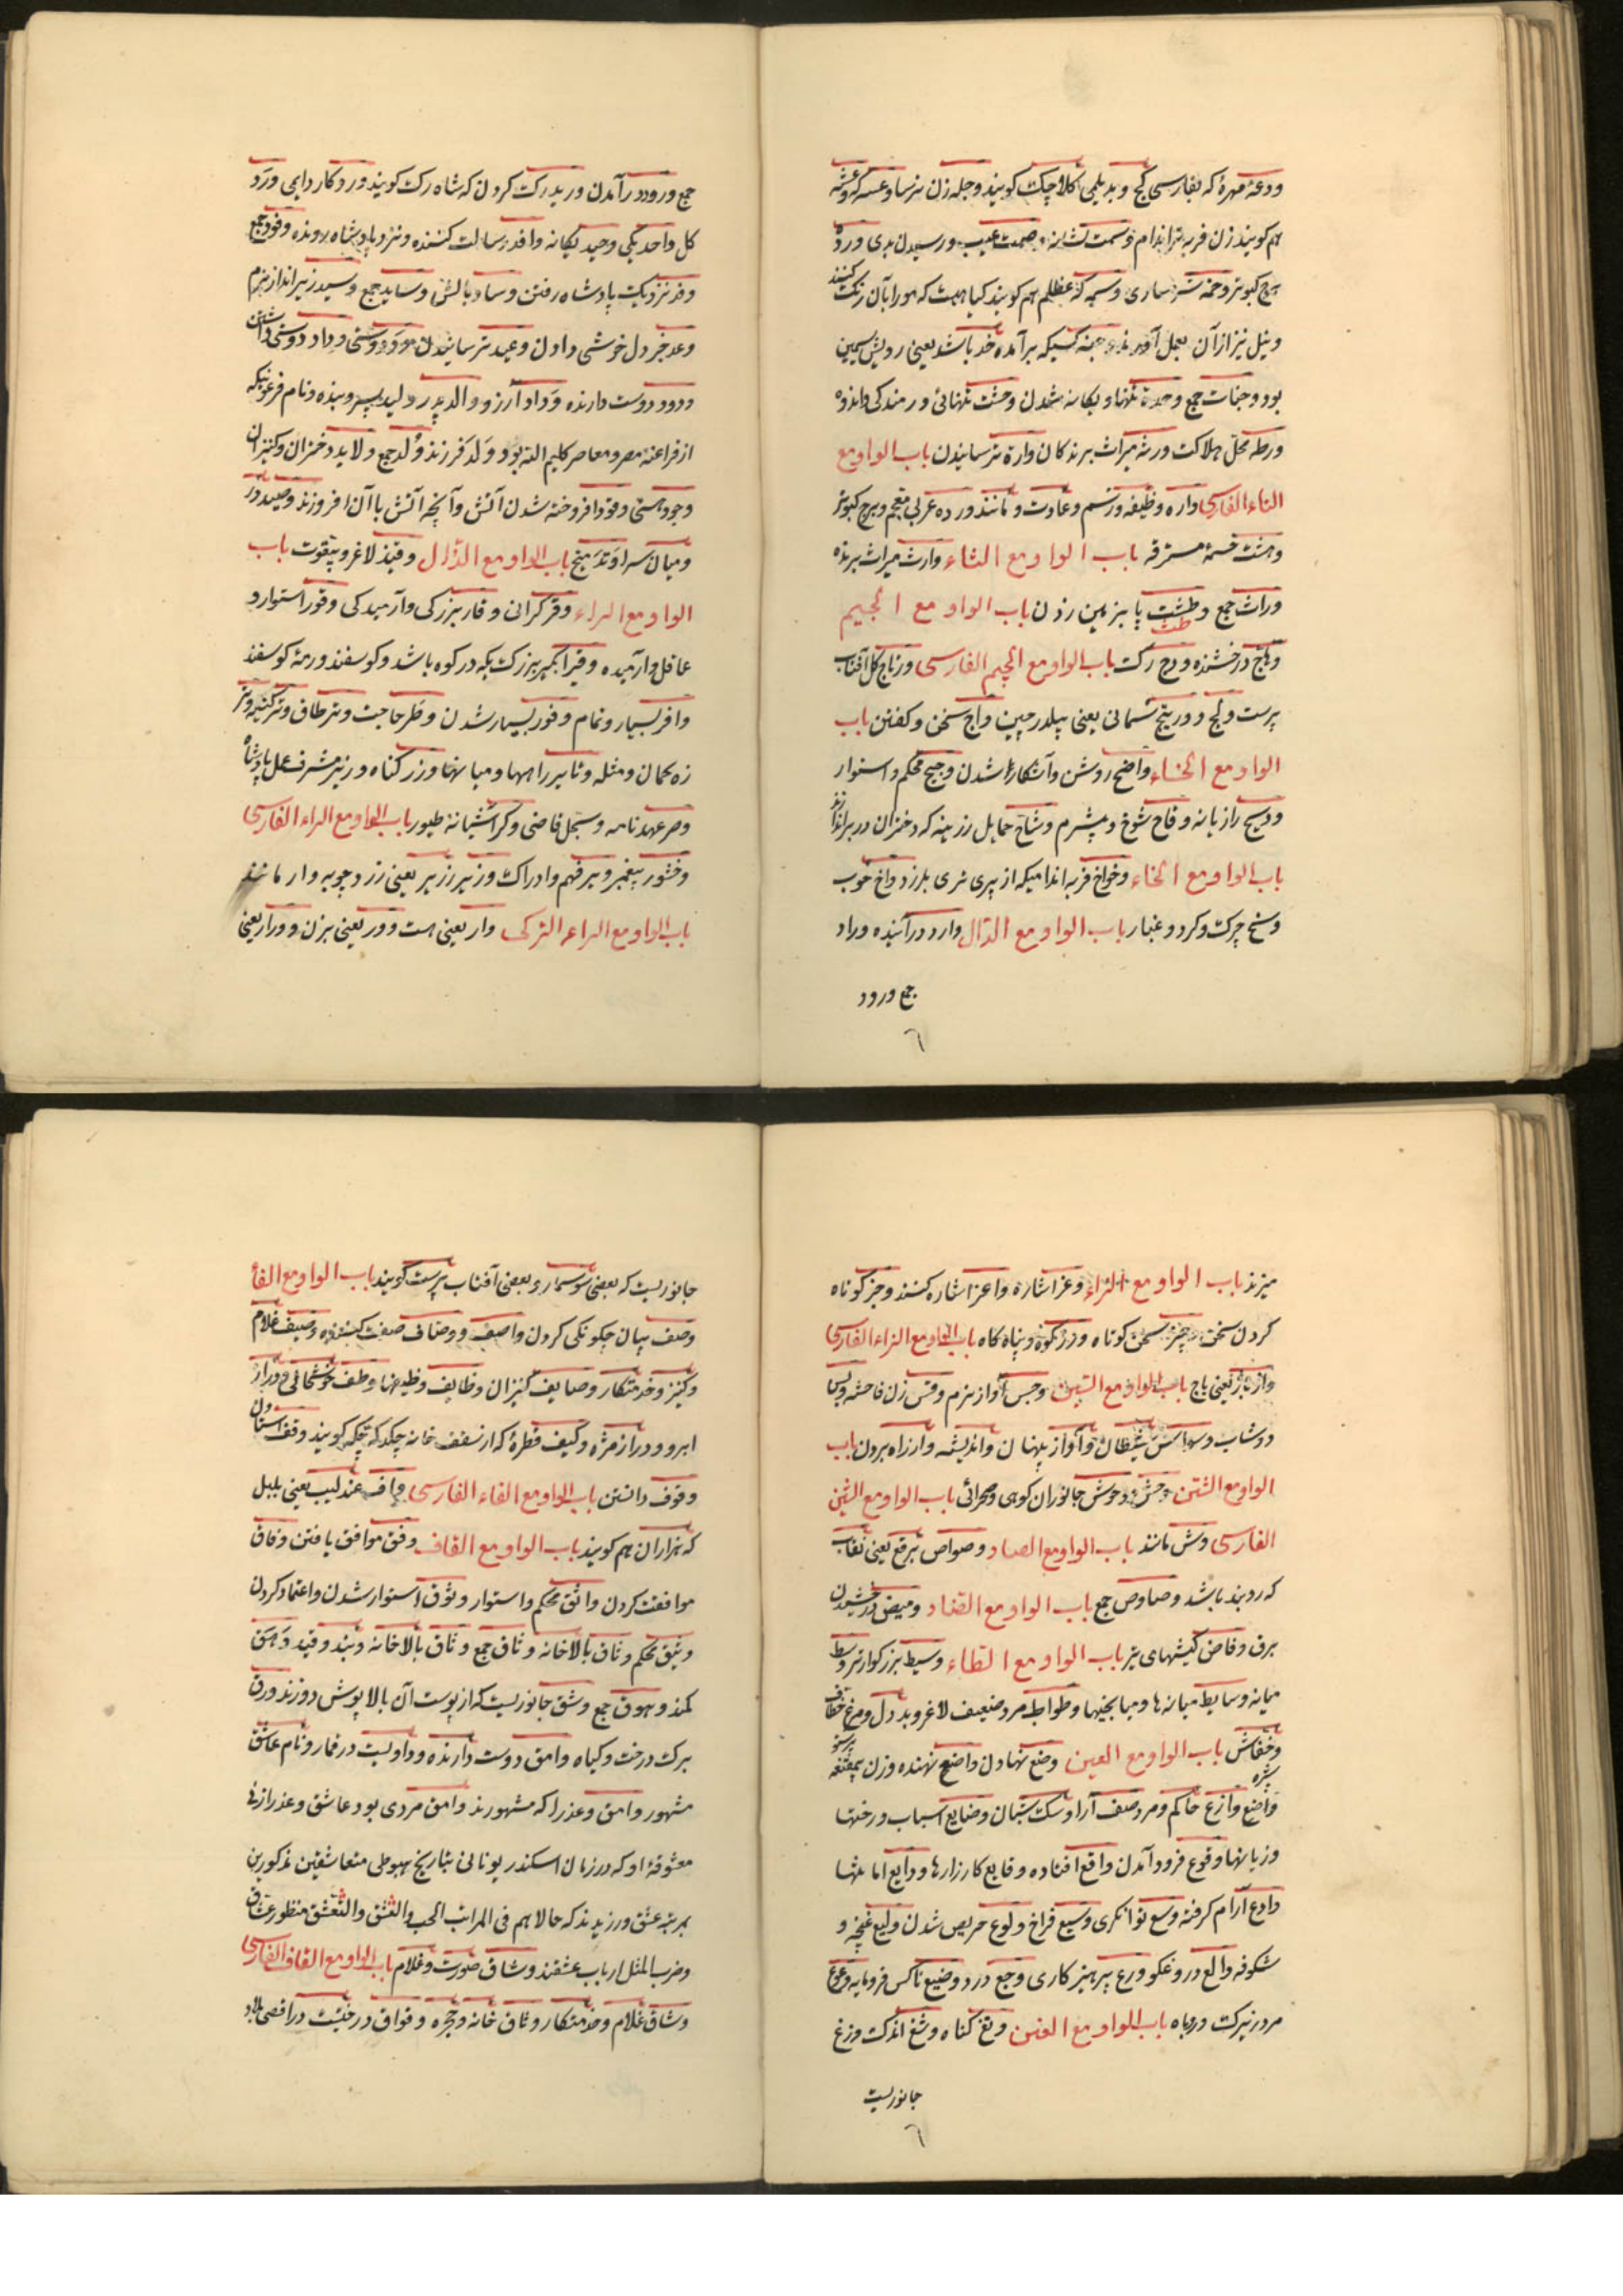 ودعهٔ مهرهٔ که بفارسی کج و بدیلمی کلاچک کویند وجله زن ترسا وعسکره وعثه
هم کویند زن فربه تر اندام وسمت نشانه وصمت عیب ورسیدن بدی ورده
برج کبوتر وخمة شرمساری وسمه که عظلم هم کویند کیاهیست که مو را بآن رنک کنند
ونیل نیز از آن بعمل آورند وجنه کسیکه برآمده خد باشد یعنی رویش سمین
بود وجنات جمع وحدة تنها ویکانه شدن وحشت تنهائی ورمندکی واندوه
ورطه محل هلاکت ورثه میراث برندکان وارة ترسانیدن باب الواو مع
التاء الفارسی واره وظیفه ورسم وعادت ومانند ورده عربی معجم وبرج کبوتر
وهشت خمسهٔ مسترقه باب الواو مع الثاء وارث میراث برنده
وراث جمع وطث پا بزمین زدن باب الواو مع الجیم
وهاج درخشنده ودج رک باب الواو مع الجیم الفارسی ورتاج کل آفتاب
پرست ولج ووریتج سمانی یعنی بیلدرچین واج سخن وکفتن باب
الواو مع الحاء واضح روشن وآشکارا شدن وجیح محکم واستوار
ودیح رازیانه وقاح شوخ وبیشرم وشاح حمایل زرینه که دختران در بر اندازند
باب الواو مع الخاء وخواخ فربه اندامیکه از پیری نری بلرزد واخ خوب
وسخ چرک وکرد وغبار باب الواو مع الدال وارد درآینده وراد
جمع ورود
جمع ورود درآمدن ورید رک کردن که شاه رک کویند ورد کار دایمی ورد
کل واحد یکی وحید یکانه وافد رسالت کننده ونزد پادشاه رونده وفود جمع
وفد نزدیک پادشاه رفتن وساد بالش وساید جمع وسید زیرانداز بزم
وعد خبر دل خوشی دادن وعید ترسانیدن مودود دوستی وداد دوستی داشتن
ودود دوست دارنده وداد آرزو والد پدر ولید پسر وبنده ونام فرعونیکه
از فراعنهٔ مصر ومعاصر کلیم الله بود ولد فرزند ولد جمع ولاید دختران وکنیزان
وجود هستی وقود افروخته شدن آتش وآنچه آتش باآن افروزند وصید در
ومیان سرا وتد میخ باب الواو مع الذال وقیذ لاغر وبیقوت باب
الواو مع الراء وقر کرانی وقار بزرکی وآرمیدکی وقور استوار و
عاقل وآرمیده وقیر آبکیر بزرک یکه در کوه باشد وکوسفند ورمهٔ کوسفند
وافر بسیار وتمام وفور بسیار شدن وطر حاجت وتر طاق وتر کینه وتر
زه کمان ومثله وتایر راهها ومیانها وزر کناه وزیر مشرف عمل پادشاه
وصر عهدنامه وسجل قاضی وکر آشیانهٔ طیور باب الواو مع الراء الفارسی
وخشور پیغمبر وبر فهم وادراک وزیر زریر یعنی زردچوبه وار مانند
باب الواو مع الراء الترکی وار یعنی هست وور یعنی بزن وورار یعنی
میزند باب الواو مع الزاء وعز اشاره واعز اشاره کنند وجز کوتاه
کردن سخن وجیز سخن کوتاه وزر کوه وپناه کاه باب الواو مع الزاء الفارسی
واژ باژ یعنی باج باب الواو مع السین وجس آواز نرم وقس زن فاحشه ولسا
دوشاب وسواس شیطان وآواز پنهان واندیشه واز راه بردن باب
الواو مع الشین وحش وحوش جانوران کوهی وصحرائی باب الواو مع الشین
الفارسی وش مانند باب الواو مع الصاد وصواص برقع یعنی نقاب
که روبند باشد وصاوص جمع باب الواو مع الضاد ومیض درخشیدن
برق وفاض کیشهای تیر باب الواو مع الطاء وسیط بزرکوارتر وسط
میانه وسایط میانه‌ها ومیانجیها وطواط مرد ضعیف لاغر وبددل ومرغ خطاف پرستو
وخفاش شبپره باب الواو مع العین وضع نهادن واضع نهنده وزن بیمقنعه
واضع وازع حاکم ومرد صف آرا وسک شبان وضایع اسباب ورختها
وزیانها وقوع فرود آمدن واقع افتاده وقایع کارزارها ودایع امانتها
وادع آرام کرفته وسع توانکری وسیع فراخ ولوع حریص شدن ولیع غنچه و
شکوفه والع دروغکو ورع پرهیزکاری وجع درد وضیع ناکس فرومایه وعوع
مرد زیرک وروباه باب الواو مع الغین وتغ کناه وشغ اندک وزغ
جانوریست
جانوریست که بعضی سوسمار وبعضی آفتاب پرست کویند باب الواو مع الفاء
وصف بیان چکونکی کردن واصف ووصاف صفت کننده وصیف غلام
وکنیز وخدمتکار وصایف کنیزان وظایف وظیفها وطف خوشحالی ودراز
ابرو ودراز مژه وکیف قطرهٔ که از سقف خانه چکد که چکه کویند وقف استادن
وقوف دانستن باب الواو مع الفاء الفارسی واف عندلیب یعنی بلبل
که هزاران هم کویند باب الواو مع القاف وفق موافق یافتن وفاق
موافقت کردن واثق محکم واستوار وثوق استوار شدن واعتماد کردن
وثیق محکم وثاق بالاخانه وثاق جمع وثاق بالاخانه وبند وقید وهق
کمند وهوق جمع وشق جانوریست که از پوست آن بالاپوش دوزند ورق
برک درخت وکیاه وامق دوست دارنده وداویست در قمار ونام عاشق
مشهور وامق وعذرا که مشهورند وامق مردی بود عاشق وعذرا زنی
معشوقهٔ او که در زمان اسکندر یونانی بتاریخ هبوطی متعاشقین مذکورین
بمرتبه عشق ورزیدند که حالا هم فی المراتب الحب والعشق والتعشق منظور عشاق
وضرب المثل ارباب عشقند وشاق صورت وغلام باب الواو مع القاف الفارسی
وشاق غلام وخدمتکار وثاق خانه وحجره وقواق درختیست در اقصی بلاد